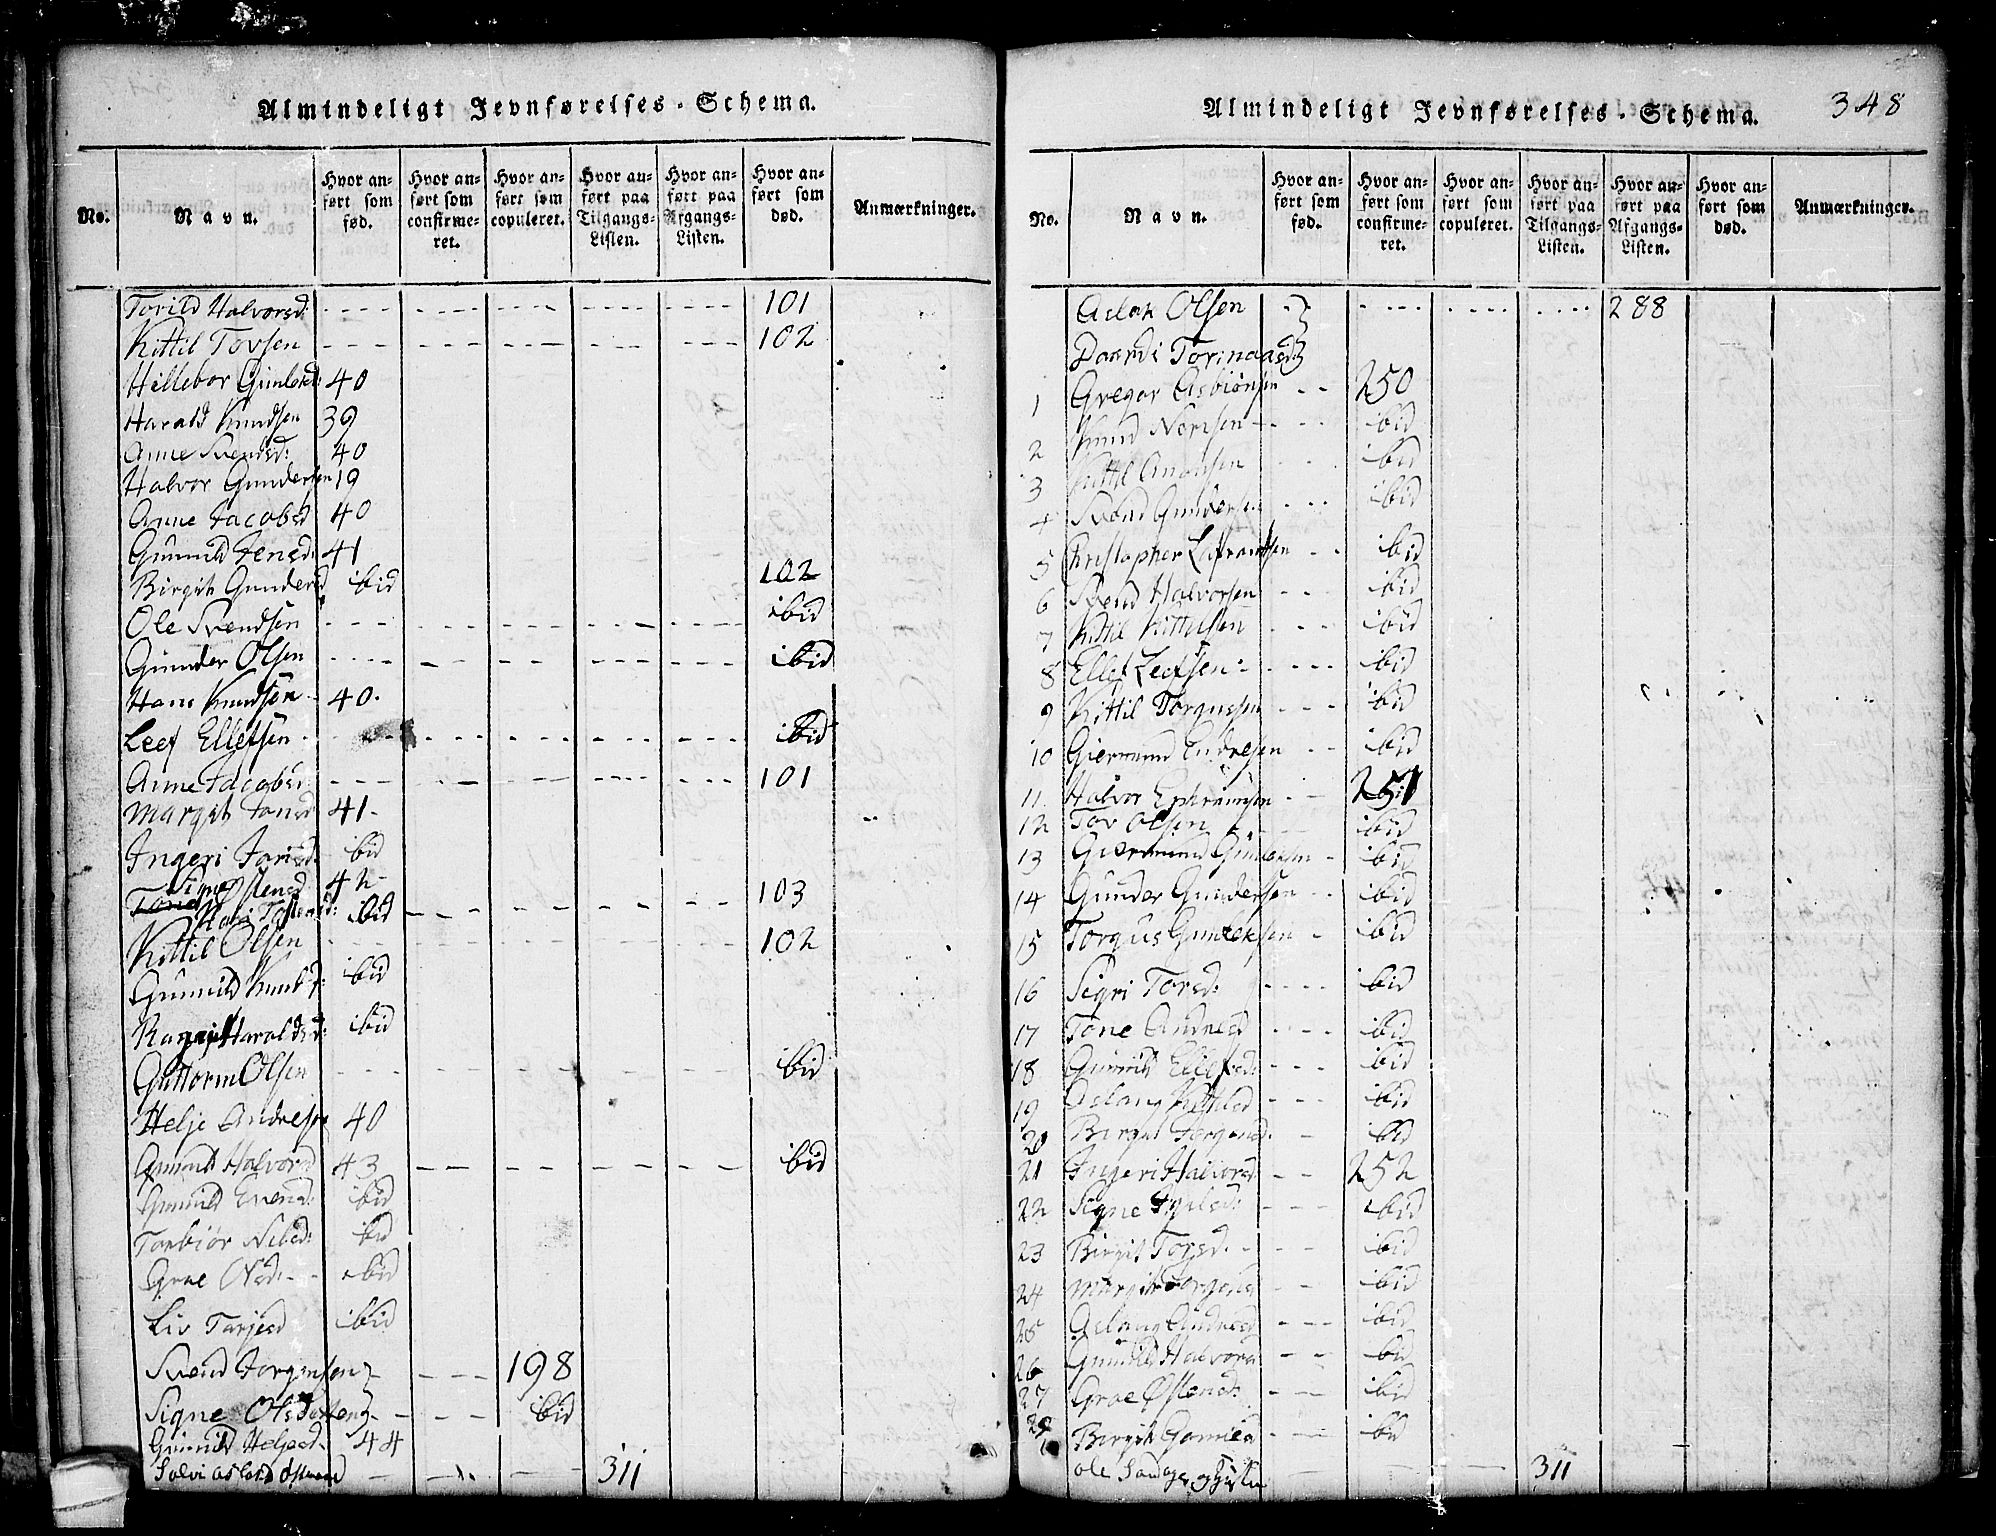 Almindeligt Jevnførelses-Schema.
No. Navn. Hvor anført som fød. Hvor anført som confirmeret. Hvor anført som copuleret. Hvor anført paa Tilgangs-Listen. Hvor anført paa Afgangs-Listen. Hvor anført som død. Anmærkninger.
Torild Halvorsd: 101
Kittil Tovsen 102
Hellebor Gunleksd: 40
Harald Knudsen 39
Anne Svendsd: 40
Halvor Gundersen 19
Anne Jacobsd 40
Gunnild Jensd: 41
Birgit Gundersd ibid 102
Ole Svendsen ibid
Gunder Olsen ibid
Hans Knudsen 40.
Leef Ellefsen ibid
Anne Jacobsd: 101
Margit Jansd 41-
Ingeri Jorisd. ibid
Signe Østensd 42-
Kari Tostensd: ibid 103
Kittil Olsen 102
Gunnild Knudsd: ibid
Haraldsd: ibid
Guttorm Olsen ibid
Helje Andresen 40
Gunnild Halvorsd 43 ibid
Gunnild Evensd: ibid
Torbiør Nilsd: ibid
Groe Olsd. ibid
Liv Tarjesd ibid
Svend Jorgensen 198
Signe Olsdatter ibid
Gunnild Heljesd. 44
Solvi Aslatsd 311
Almindeligt Jevnførelses-Schema. 348
No. Navn. Hvor anført som fød. Hvor anført som confirmeret. Hvor anført som copuleret. Hvor anført paa Tilgangs-Listen. Hvor anført paa Afgangs-Listen. Hvor anført som død. Anmærkninger.
Aslak Olsen 288
1 Gregar Asbiønsen 250
2 Knud ibid
3 Kittil ibid
4 Svend Gundersen ibid
5 Christopher ibid
6 Svend Halvorsen ibid
7 Kittil Kittilsen ibid
8 Ellef Leefsen ibid
9 Kittil Torgussen ibid
10 Giermund Endresen ibid
11 Halvor Ephraimsen 251
12 Tov Olsen ibid
13 Giermund ibid
14 Gunder Gundersen ibid
15 Torgus Gunleksen ibid
16 Sigri Torsd: ibid
17 Tone Andresd ibid
18 Gunnild Ellefsd: ibid
19 Aslaug Kittilsd ibid
20 Birgit Jorgensd. ibid
21 Ingeri Halvorsd 252
22 Signe ibid
23 Birgit Torsd. ibid
24 Margit ibid
25 Aslaug Andresd ibid
26 Gunnild Halvorsd ibid
27 Groe Østensd: ibid
28 Birgit ibid
Ole 311